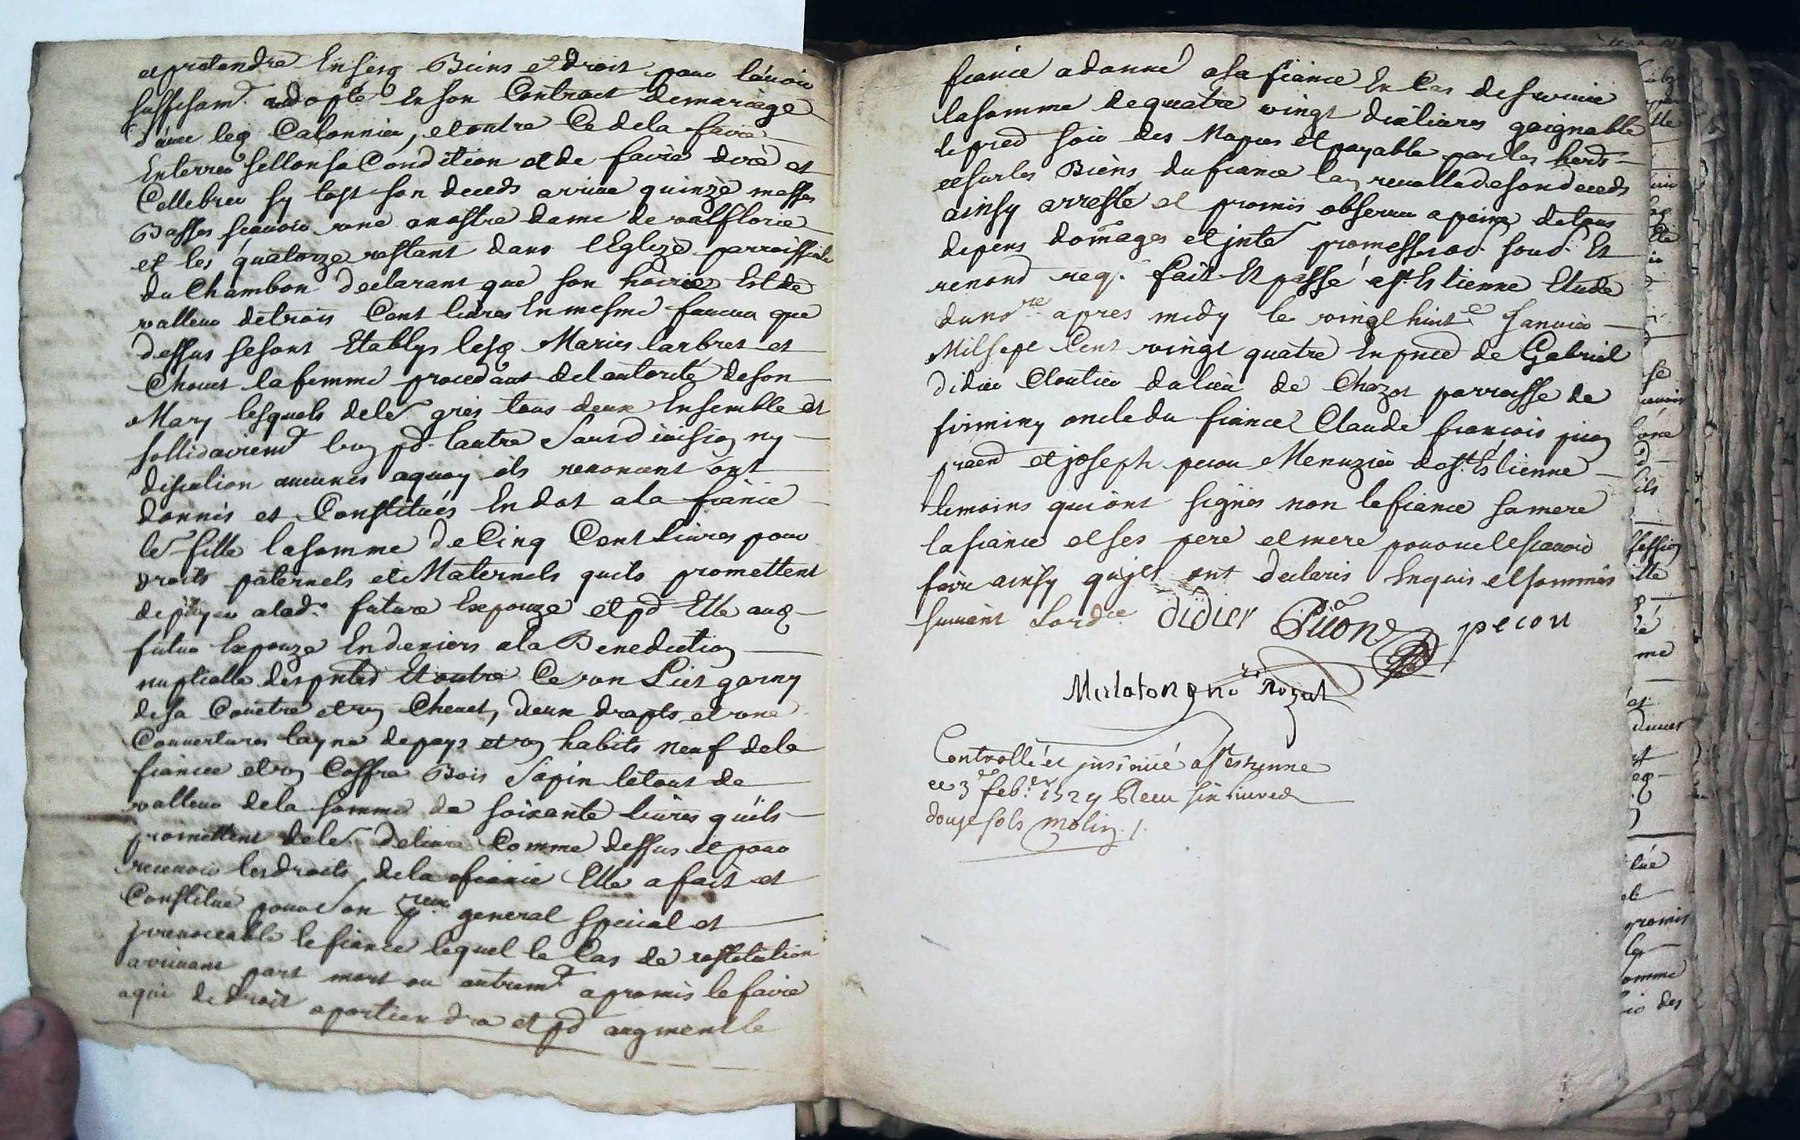 et pretendre en ses Biens et droit pour lavoir
suffisamt. adopté en son Contract de mariage
Calonnier, et outre Ce de la faire
Enterrer sellon sa Condition et de faire dire et
Cellebrer sy tost son deceds arrivé quinze messes
Basses scavoir une a nostre dame de valfloride
et les quatorze restant dans l'Eglize parroissialle
du Chambon declarant que son hoirie Est de
valleur de trois Cent livres En mesme faveur que
dessus se sont Etablys lesd Maries larbret et
Chovet la femme procedant de l'autorité de son
Mary lesquels de leur grés tous deux Ensemble et
sollidairemt lun pd. lautre sans division ny
discution aucunes aquoy ils renoncent ont
donnés et Constitués En dot a la fiancée
leur fille la somme de Cinq Cent Livres pour
droits paternels et Maternels quils promettent
de payer a lad. future Expouze et pd Elle aud
futur Expouze En deniers a la Benediction
nuptialle des pntes Et outre Ce un Lict garny
de sa Couétre et un Chevet, deux draps et une
Couvertures layne de pays et un habits neuf de la
fiancée et un Coffre Bois Sapin le tout de
valleur de la somme de soixante livres quils
promettent de leur delivrer Comme dessus et pour
recevoir les droits de la fiancée Elle a fait et
Constitué pour son preur general special et
jrrevocable le fiancé lequel le Cas de restitution
arrivant part mort ou autremt a promis le faire
a qui de droit apartiendra et pd augment le
fiancé a donné a sa fiancée En Cas de survie
la somme de quatre vingt dix livres gaignable
le pred soir des Nopces et payable par les herds
et sur les Biens du fiancé lan revollu de son deceds
ainsy arresté et promis observer a peine de tous
depens domages et jnts promess. oblig. soub. Et
renond req. fait Et passé a St. Estienne Etude
du nore apres midy le vingt huit e Janvier
Mil sept Cent vingt quatre En pnce de Gabriel
didier Cloutier du lieu de Chazot parroisse de
firminy oncle du fiancé Claude francois
praend et joseph pecou Menuzier de St. Estienne
temoins qui ont signés non le fiancé sa mere
la fiancée et ses pere et mere pour ne le scavoir
faire ainsy quils ont declarés Enquis et sommés
suivant Lordce didier Pitiong pecon
Rozat
Controllé et jnsinué a St estienne
ce 3 febr. 1724 Receu six livres
douze sols molin